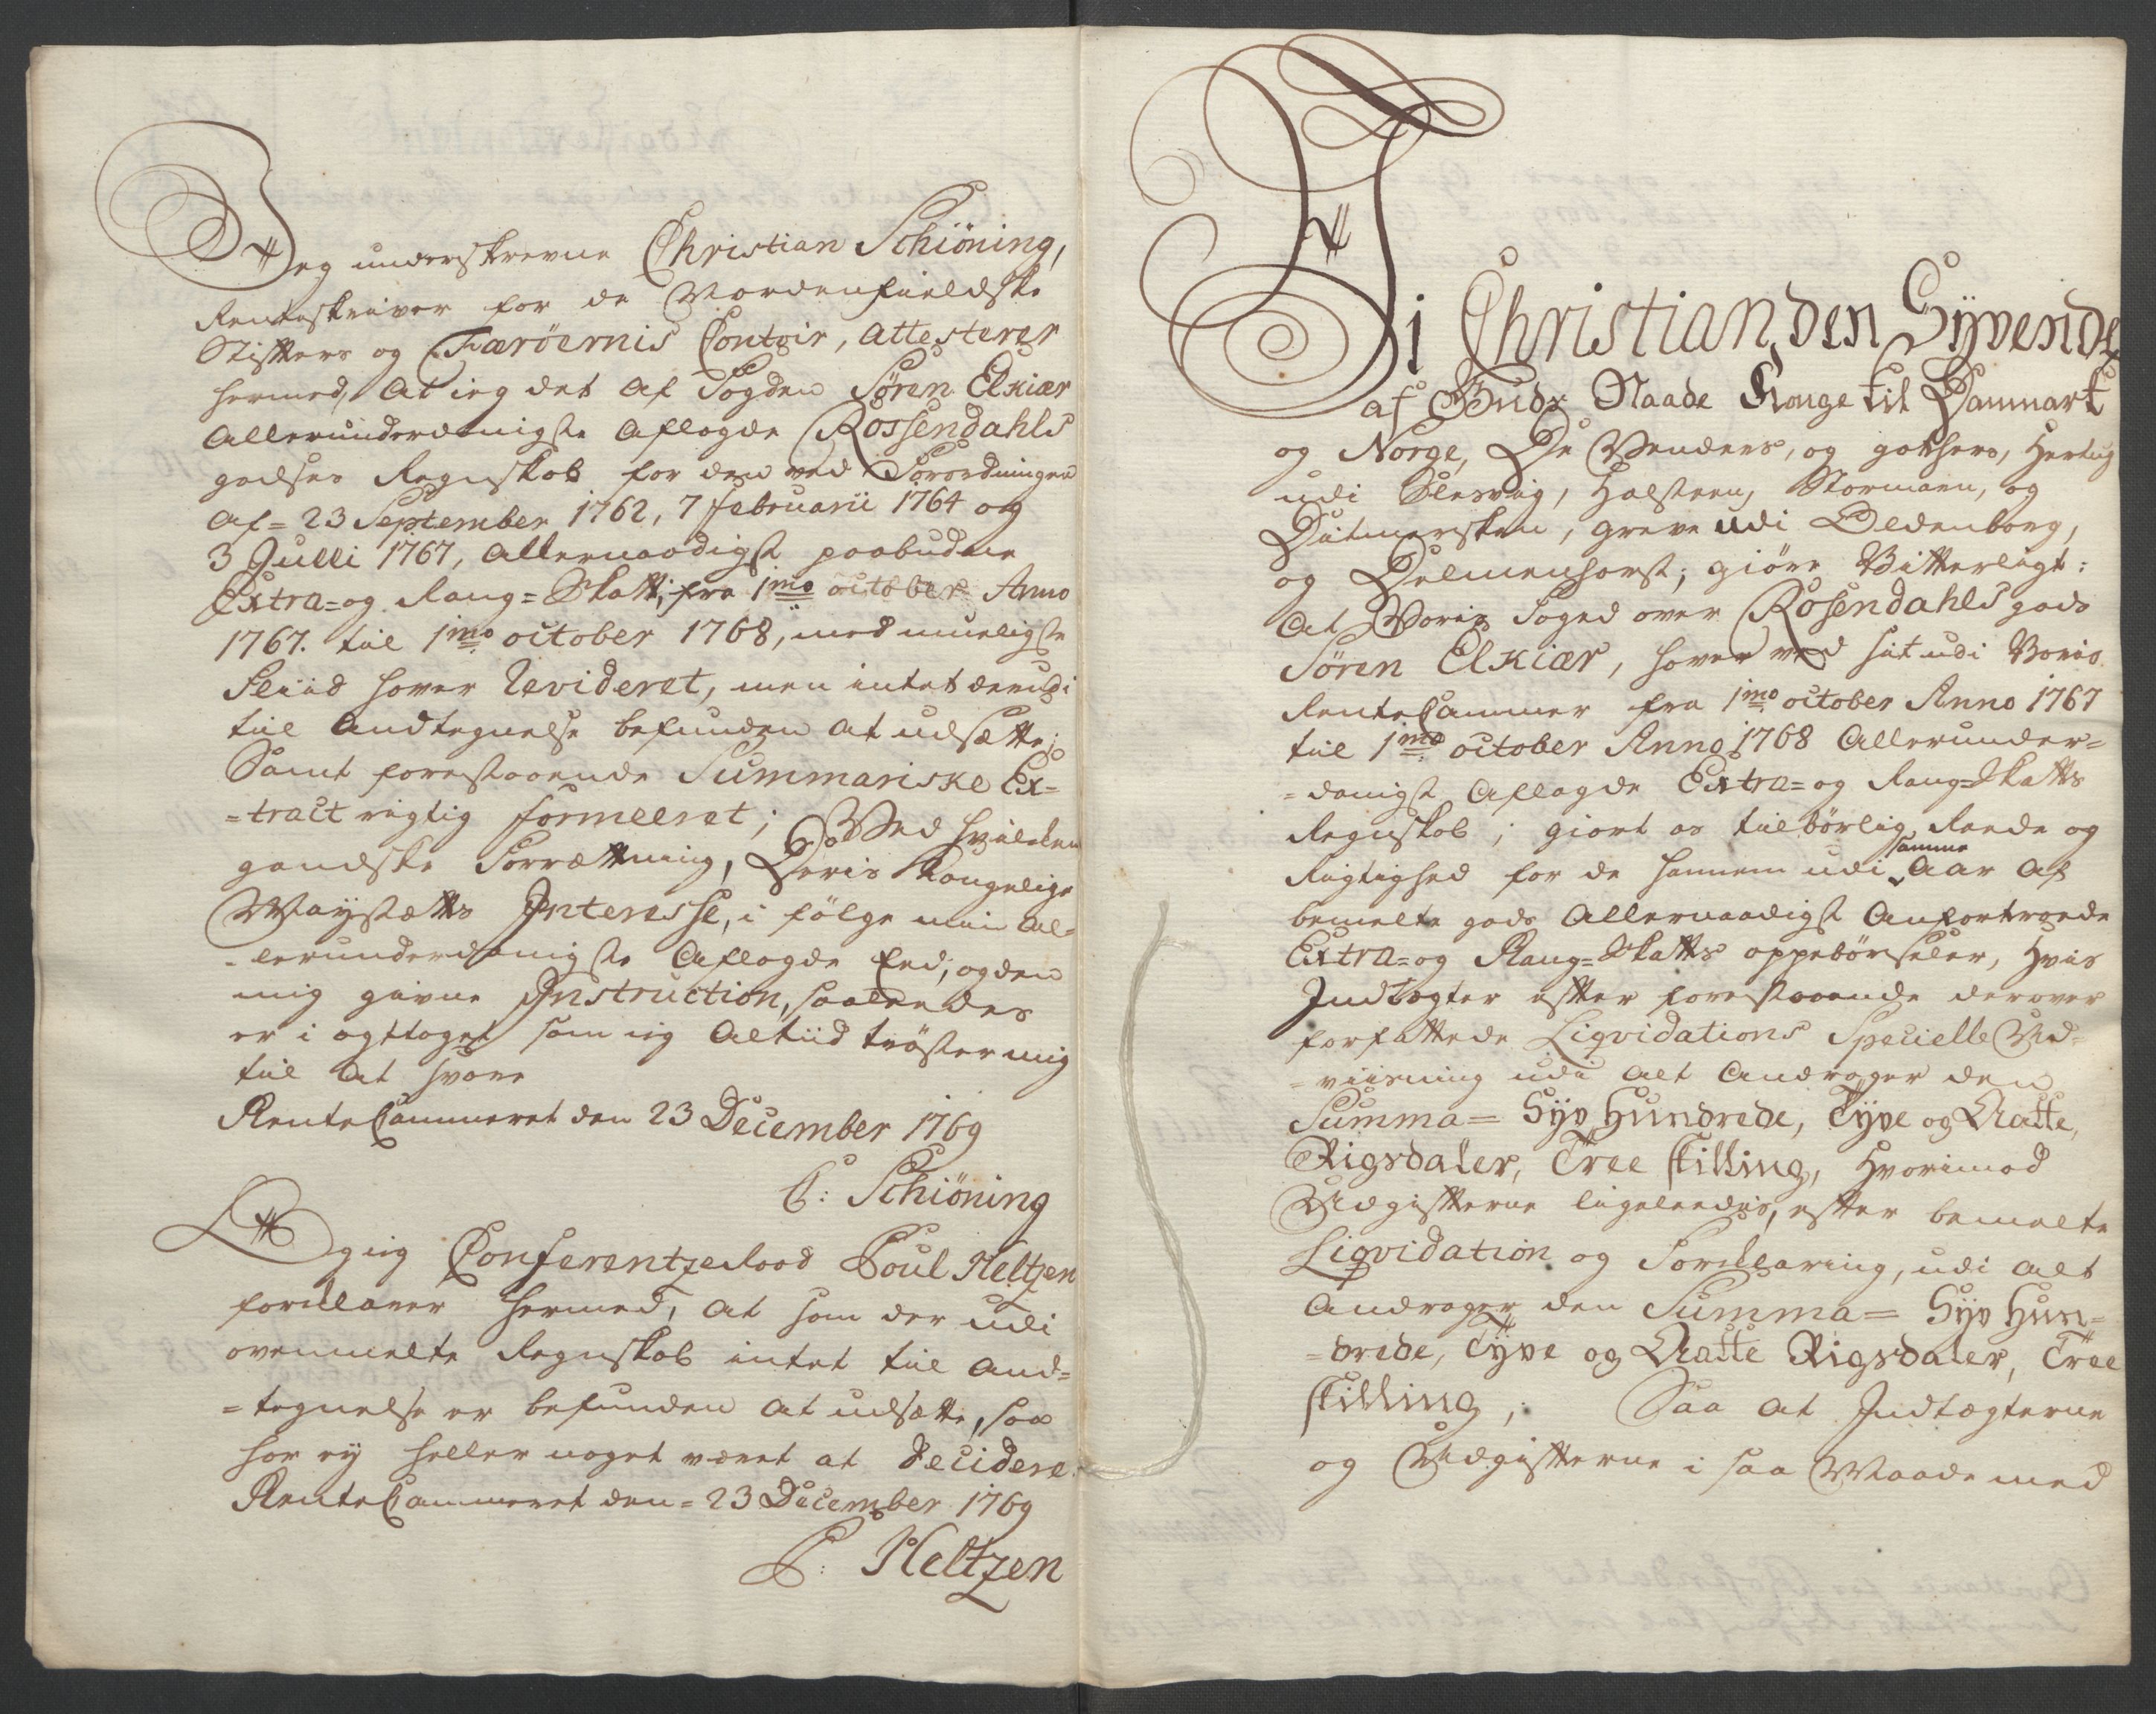 Jeg underskrevne Christian Schiöning,
Renteskriver for de Nordenfieldske
Stifters og Færöernis Contoir, attesterer
hermed, at jeg det af Fogden Sören Elkiær
allerunderdanigste aflagde Rossendahls
godses Regnskab for den ved Forordningen
af = 23 September 1762, 7 Februarii 1764 og
3 Julli 1767, allernaadigst paabudne
Extra= og Rang=Skatt, fra 1mo october Anno
1767. til 1mo october 1768, med mueligste
Fliid haver Revideret, men intet derudi
til Andtegnelse befunden at udsætte;
Samt forestaaende Summariske Ex=
=tract rigtig formeeret; Ved hvilcken
gandske Forrættning, Deris Kongelige
Mayestætts Interesse, i fölge min al=
=lerunderdanigste aflagde Eed, og den
mig givne Instruction, saaledes
er i agttaget som jeg altiid tröster mig
til at svare
RenteCammeret den 23 December 1769
C: Schiöning
Og jeg Conferentzeraad Poul Heltzen
forklarer hermed, at som der udi
ovenmelte Regnskab intet til And=
=tegnelse er befunden at udsætte, saa
har ey heller noget været at decidere.
RenteCammeret den = 23 December 1769
P: Heltzen
Vi Christian den Syvende
af Guds Naade Konge til Danmark
og Norge, De Venders, og gothers, Hertug
udi Slesvig, Holsteen, Stormarn, og
Ditmersken, greve udi Oldenborg,
og Delmenhorst; giöre Vitterligt:
At Voris Foged over Rosendahls gods
Sören Elkiær, haver ved sit udi Voris
RenteCammer fra 1mo october Anno 1767
til 1mo october Anno 1768 Allerunder=
=danigst aflagde Extra= og Rang=Skatts
Regnskab; giort os tilbörlig Reede og
Rigtighed for de hannem udi samme Aar af
bemelte gods Allernaadigst Anfortroede
Extra= og Rang=Skatts oppebörseler, Hvis
Indtægter efter forestaaende derover
forfattede Liqvidations Specielle Ud=
=viisning udi alt Andrager den
Summa = Syv Hundrede, Tyve og Aatte,
Rigsdaler, Tree skilling, Hvorimod
Udgifterne ligeleedes, efter bemelte
Liqvidation og Forklaring, udi alt
Andrager den Summa = Syv Hun=
=drede, Tyve og Aatte Rigsdaler, Tree
skilling; Saa at Indtægterne
og Udgifterne i saa Maade med